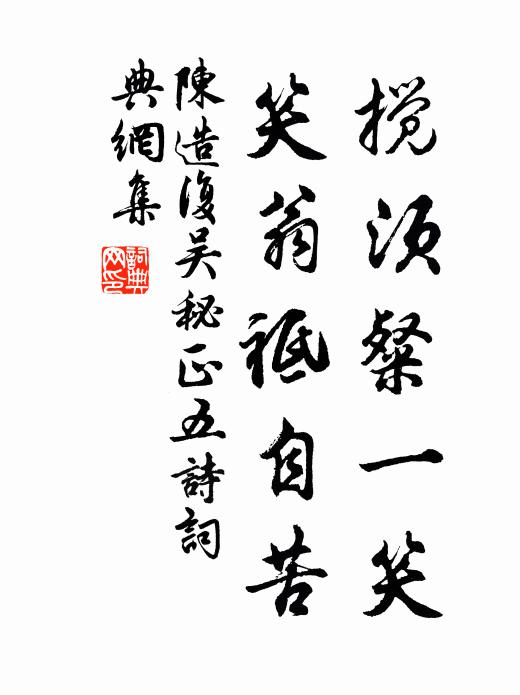 揽须粲一笑
笑翁祗自苦
陳造復吴秘正五詩詞
典網集
詞典
网印